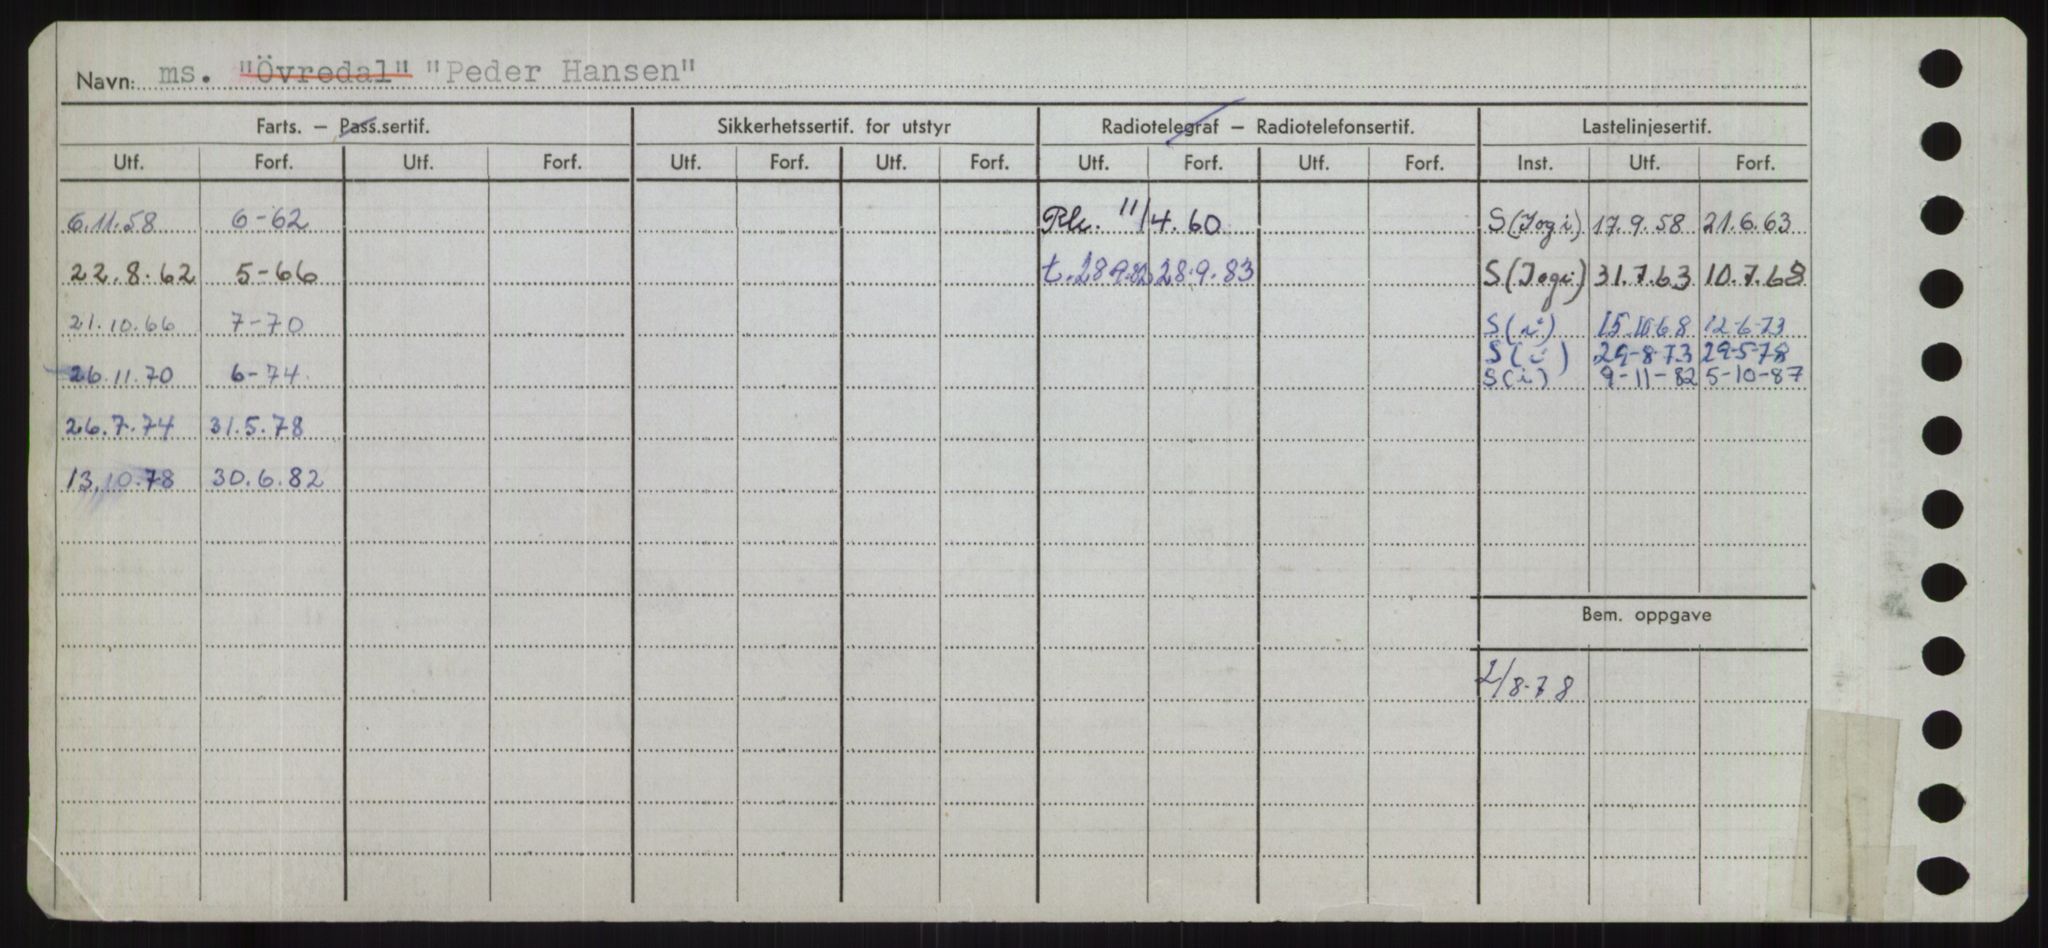 Navn: ms. "Övredal" "Peder Hansen"
Farts. — Pass.sertif. Sikkerhetssertif. for utstyr Radiotelegraf — Radiotelefonsertif. Lastelinjesertif.
Utf. Forf. Utf. Forf. Utf. Forf. Utf. Forf. Utf. Forf. Utf. Forf. Inst. Utf. Forf.
6.11.58 6-62 11/4.60 S(Jogi) 17.9.58 21.6.63
22.8.62 5-66 t.28.9.82 28.9.83 S(Jogi) 31.7.63 10.7.68
21.10.66 7-70 S(i) 15.10.68 12-6-73
S(i) 29-8-73 29-5-78
26.11.70 6-74 S(i) 9-11-82 5-10-87
26.7.74 31.5.78
13.10.78 30.6.82
Bem. oppgave
2/8-78